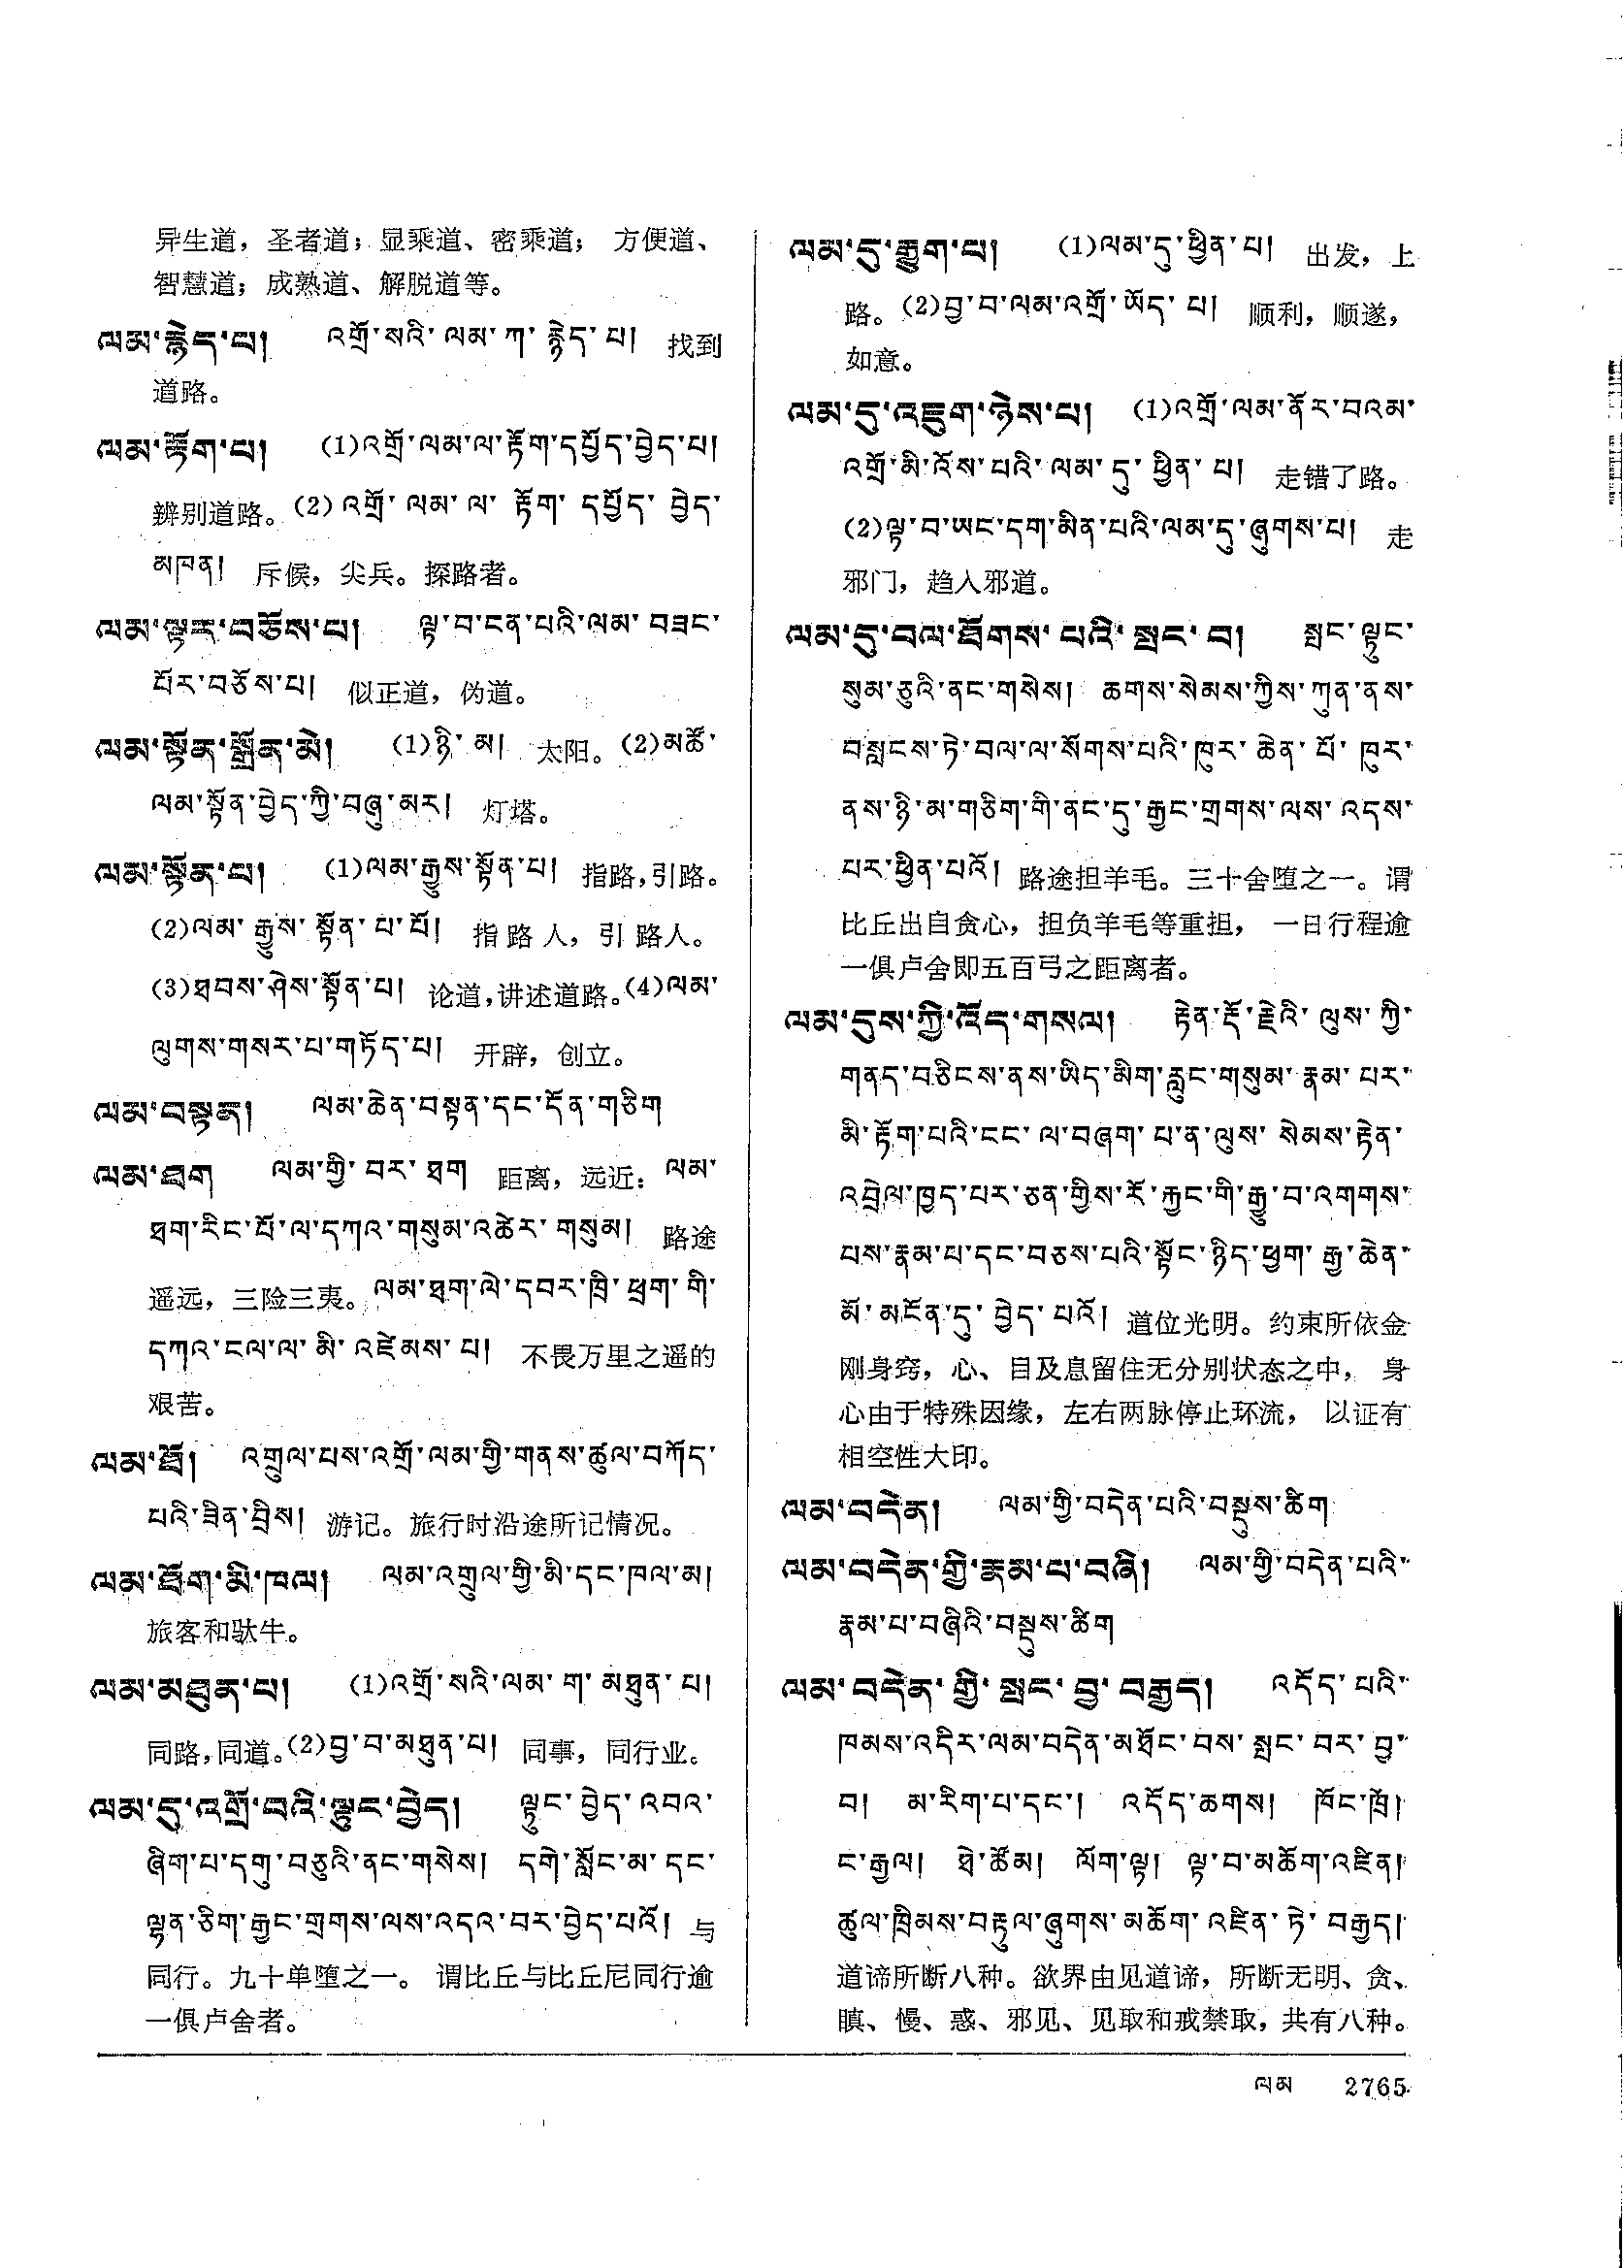 异生道，圣者道；显乘道、密乘道； 方便道、
智慧道；成熟道、解脱道等。
ལམ་རྙེད་པ། འགྲོ་སའི་ལམ་ཀ་རྙེད་པ། 找到
道路。
ལམ་རྟོག་པ། (1)འགྲོ་ལམ་ལ་རྟོག་དཔྱོད་བྱེད་པ།
辨别道路。(2)འགྲོ་ལམ་ལ་རྟོག་དཔྱོད་བྱེད་
མཁན། 斥候，尖兵。探路者。
ལམ་ལྟར་བཅོས་པ། ལྟ་བ་ངན་པའི་ལམ་བཟང་
པོར་བཅོས་པ། 似正道，伪道。
ལམ་སྟོན་སྒྲོན་མེ། (1)ཉི་མ། 太阳。(2)མཚོ་
ལམ་སྟོན་བྱེད་ཀྱི་བཞུ་མར། 灯塔。
ལམ་སྟོན་པ། (1)ལམ་རྒྱུས་སྟོན་པ། 指路，引路。
(2)ལམ་རྒྱུས་སྟོན་པ་པོ། 指路人，引路人。
(3)ཐབས་ཤེས་སྟོན་པ། 论道，讲述道路。(4)ལམ་
ལུགས་གསར་པ་གཏོད་པ། 开辟，创立。
ལམ་བསྟན། ལམ་ཆེན་བསྟན་དང་དོན་གཅིག
ལམ་ཐག ལམ་གྱི་བར་ཐག 距离，远近：ལམ་
ཐག་རིང་པོ་ལ་དཀའ་གསུམ་འཚེར་གསུམ། 路途
遥远，三险三夷。ལམ་ཐག་ལེ་དབར་ཁྲི་ཕྲག་གི་
དཀའ་ངལ་ལ་མི་འཛེམས་པ། 不畏万里之遥的
艰苦。
ལམ་ཐོ། འགྲུལ་པས་འགྲོ་ལམ་གྱི་གནས་ཚུལ་བཀོད་
པའི་ཟིན་བྲིས། 游记。旅行时沿途所记情况。
ལམ་ཐོག་མི་ཁལ། ལམ་འགྲུལ་གྱི་མི་དང་ཁལ་མ།
旅客和驮牛。
ལམ་མཐུན་པ། (1)འགྲོ་སའི་ལམ་ག་མཐུན་པ།
同路，同道。(2)བྱ་བ་མཐུན་པ། 同事，同行业。
ལམ་དུ་འགྲོ་བའི་ལྟུང་བྱེད། ལྟུང་བྱེད་འབའ་
ཞིག་པ་དགུ་བཅུའི་ནང་གསེས། དགེ་སློང་མ་དང་
ལྷན་ཅིག་རྒྱང་གྲགས་ལས་འདའ་བར་བྱེད་པའོ། 与
同行。九十单堕之一。 谓比丘与比丘尼同行逾
一俱卢舍者。
ལམ་དུ་རྒྱུག་པ། (1)ལམ་དུ་ཕྱིན་པ། 出发，上
路。(2)བྱ་བ་ལམ་འགྲོ་ཡོད་པ། 顺利，顺遂，
如意。
ལམ་དུ་འཇུག་ཉེས་པ། (1)འགྲོ་ལམ་ནོར་བའམ་
འགྲོ་མི་འོས་པའི་ལམ་དུ་ཕྱིན་པ། 走错了路。
(2)ལྟ་བ་ཡང་དག་མིན་པའི་ལམ་དུ་ཞུགས་པ། 走
邪门，趋入邪道。
ལམ་དུ་བལ་ཐོགས་པའི་སྤང་བ། སྤང་ལྟུང་
སུམ་ཅུའི་ནང་གསེས། ཆགས་སེམས་ཀྱིས་ཀུན་ནས་
བསླངས་ཏེ་བལ་ལ་སོགས་པའི་ཁུར་ཆེན་པོ་ཁུར་
ནས་ཉི་མ་གཅིག་གི་ནང་དུ་རྒྱང་གྲགས་ལས་འདས་
པར་ཕྱིན་པའོ། 路途担羊毛。三十舍堕之一。谓
比丘出自贪心，担负羊毛等重担， 一日行程逾
一俱卢舍即五百弓之距离者。
ལམ་དུས་ཀྱི་འོད་གསལ། རྟེན་རྡོ་རྗེའི་ལུས་ཀྱི་
གནད་བཅིངས་ནས་ཡིད་མིག་རླུང་གསུམ་རྣམ་པར་
མི་རྟོག་པའི་ངང་ལ་བཞག་པ་ན་ལུས་སེམས་རྟེན་
འབྲེལ་ཁྱད་པར་ཅན་གྱིས་རོ་རྐྱང་གི་རྒྱུ་བ་འགགས་
པས་རྣམ་པ་དང་བཅས་པའི་སྟོང་ཉིད་ཕྱག་རྒྱ་ཆེན་
མོ་མངོན་དུ་བྱེད་པའོ། 道位光明。约束所依金
刚身窍，心、目及息留住无分别状态之中， 身
心由于特殊因缘，左右两脉停止环流， 以证有
相空性大印。
ལམ་བདེན། ལམ་གྱི་བདེན་པའི་བསྡུས་ཚིག
ལམ་བདེན་གྱི་རྣམ་པ་བཞི། ལམ་གྱི་བདེན་པའི་
རྣམ་པ་བཞིའི་བསྡུས་ཚིག
ལམ་བདེན་གྱི་སྤང་བྱ་བརྒྱད། འདོད་པའི་
ཁམས་འདིར་ལམ་བདེན་མཐོང་བས་སྤང་བར་བྱ་
བ། མ་རིག་པ་དང་། འདོད་ཆགས། ཁོང་ཁྲོ།
ང་རྒྱལ། ཐེ་ཚོམ། ལོག་ལྟ། ལྟ་བ་མཆོག་འཛིན།
ཚུལ་ཁྲིམས་བརྟུལ་ཞུགས་མཆོག་འཛིན་ཏེ་བརྒྱད།
道谛所断八种。欲界由见道谛，所断无明、贪、
瞋、慢、惑、邪见、见取和戒禁取，共有八种。
ལམ 2765